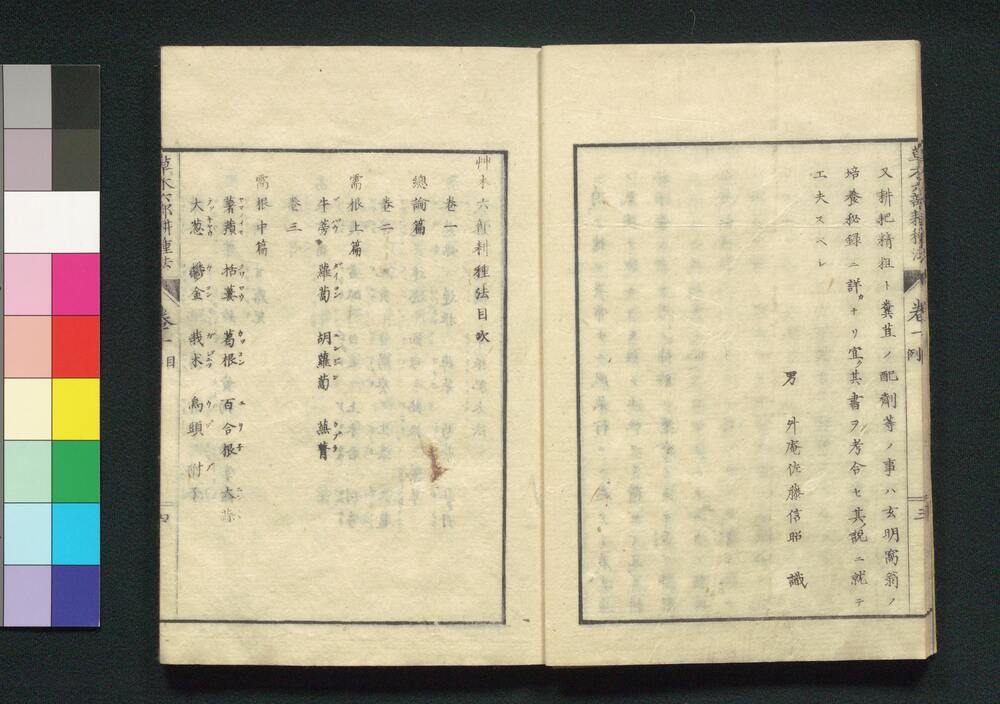 草木六部耕種法 卷一 附 三
又耕耙精粗ト糞苴ノ配劑等ノ事ハ玄明窩翁ノ
培養秘録ニ詳カナリ宜ク其書ヲ考合セ其説ニ就テ
工夫スベシ
男 外庵佐藤信昭 識
艸木六部耕種法目次
卷一
總論篇
卷二
需根上篇
牛蒡 蘿蔔 胡蘿蔔 蕪菁
卷三
需根中篇
薯蕷 栝蔞 葛根 百合根 大蒜
大葱 鬱金 莪朮 烏頭 附子
草木六部耕種法 卷一 目 四